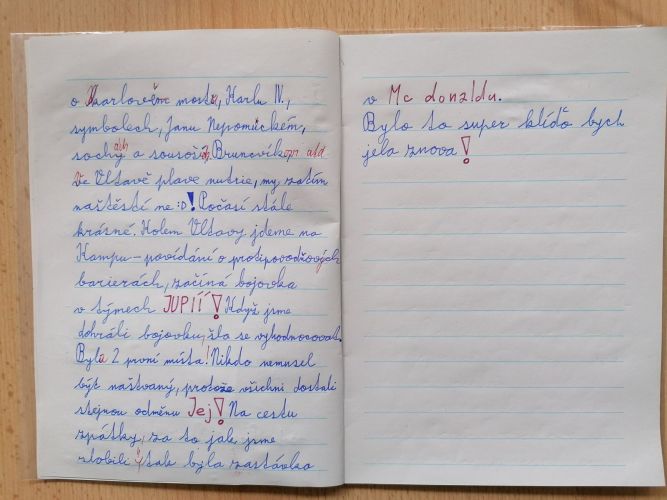 o Karlovém mostě, Karlu IV.,
symbolech, Janu Nepomuckém,
sochách a sousoší, Bruncvíkovi atd
Ve Vltavě plave nutrie, my zatím
naštěstí ne :D! Počasí stále
krásné. Kolem Vltavy jdeme na
Kampu – povídání o protipovodňových
barierách, začíná bojovka
v týmech JUPÍÍ! Když jsme
dohráli bojovku, šlo se vyhodnocovat.
Byla 2 první místa! Nikdo nemusel
být naštvaný, protože všichni dostali
stejnou odměnu Jej! Na cestu
zpátky, za to jak jsme
zlobili, tak byla zastávka
v Mc donaldu.
Bylo to super klíďo bych
jela znova!